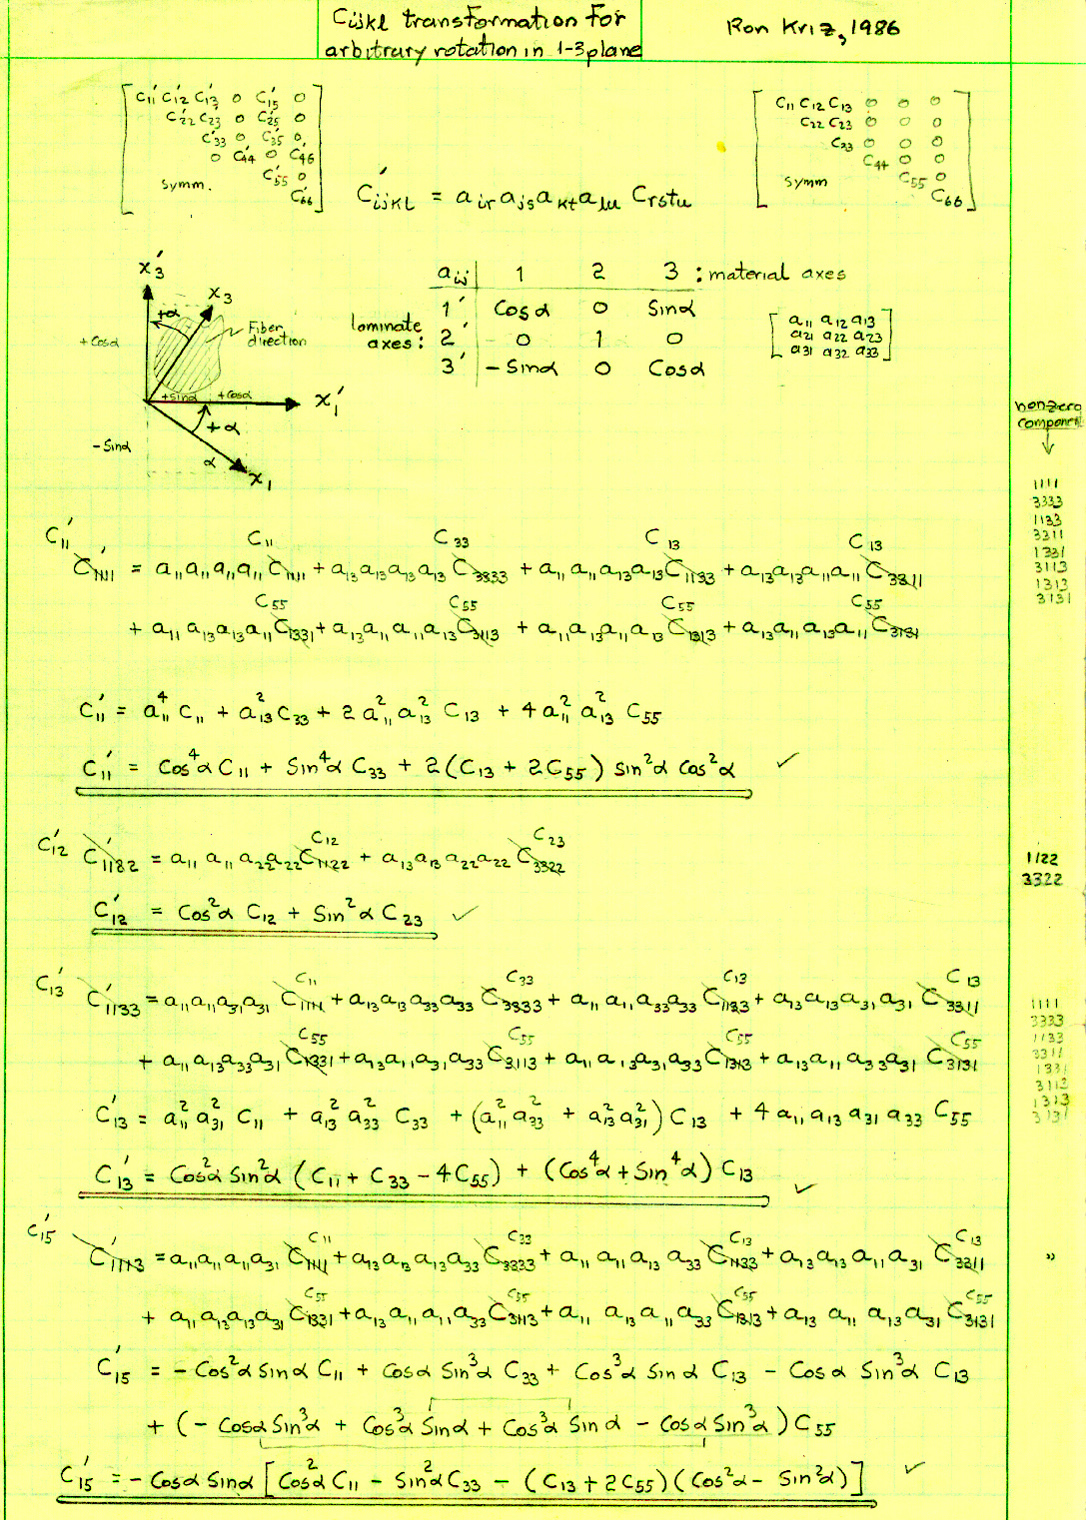 Cijkl transformation for
arbitrary rotation in 1-3 plane
Ron Kriz, 1986
C'11 C'12 C'13 0 C'15 0
C'22 C'23 0 C'25 0
C'33 0 C'35 0
0 C'44 0 C'46
C'55 0
Symm.
C'66
C11 C12 C13 0 0 0
C22 C23 0 0 0
C33 0 0 0
C44 0 0
Symm C55 0
C66
C'ijkl = air ajs akt alu Crstu
x'3
x3
+α
Fiber
direction
+Cosα
+Sinα +Cosα
x'1
+α
-Sinα
α
x1
aij 1 2 3 : material axes
1' Cosα 0 Sinα
laminate
axes: 2' 0 1 0
3' -Sinα 0 Cosα
a11 a12 a13
a21 a22 a23
a31 a32 a33
nonzero
component
↓
1111
3333
1133
3311
1331
3113
1313
3131
C'11 C11 C33 C13 C13
C'1111 = a11a11a11a11 C1111 + a13a13a13a13 C3333 + a11a11a13a13 C1133 + a13a13a11a11 C3311
C55 C55 C55 C55
+ a11a13a13a11 C1331 + a13a11a11a13 C3113 + a11a13a11a13 C1313 + a13a11a13a11 C3131
C'11 = a11⁴ C11 + a13² C33 + 2 a11² a13² C13 + 4 a11² a13² C55
C'11 = Cos⁴α C11 + Sin⁴α C33 + 2(C13 + 2C55) Sin²α Cos²α ✓
C'12 C12 C23
C'1122 = a11a11a22a22 C1122 + a13a13a22a22 C3322
1122
3322
C'12 = Cos²α C12 + Sin²α C23 ✓
C'13 C11 C33 C13 C13
C'1133 = a11a11a31a31 C1111 + a13a13a33a33 C3333 + a11a11a33a33 C1133 + a13a13a31a31 C3311
C55 C55 C55 C55
+ a11a13a33a31 C1331 + a13a11a31a33 C3113 + a11a13a31a33 C1313 + a13a11a33a31 C3131
1111
3333
1133
3311
1331
3113
1313
3131
C'13 = a11² a31² C11 + a13² a33² C33 + (a11² a33² + a13² a31²) C13 + 4 a11 a13 a31 a33 C55
C'13 = Cos²α Sin²α (C11 + C33 - 4C55) + (Cos⁴α + Sin⁴α) C13 ✓
C'15 C11 C33 C13 C13
C'1113 = a11a11a11a31 C1111 + a13a13a13a33 C3333 + a11a11a13a33 C1133 + a13a13a11a31 C3311 "
C55 C55 C55 C55
+ a11a13a13a31 C1331 + a13a11a11a33 C3113 + a11a13a11a33 C1313 + a13a11a13a31 C3131
C'15 = -Cos²α Sinα C11 + Cosα Sin³α C33 + Cos³α Sinα C13 - Cosα Sin³α C13
+ (-Cosα Sin³α + Cos³α Sinα + Cos³α Sinα - Cosα Sin³α) C55
C'15 = -Cosα Sinα [Cos²α C11 - Sin²α C33 - (C13 + 2C55)(Cos²α - Sin²α)] ✓